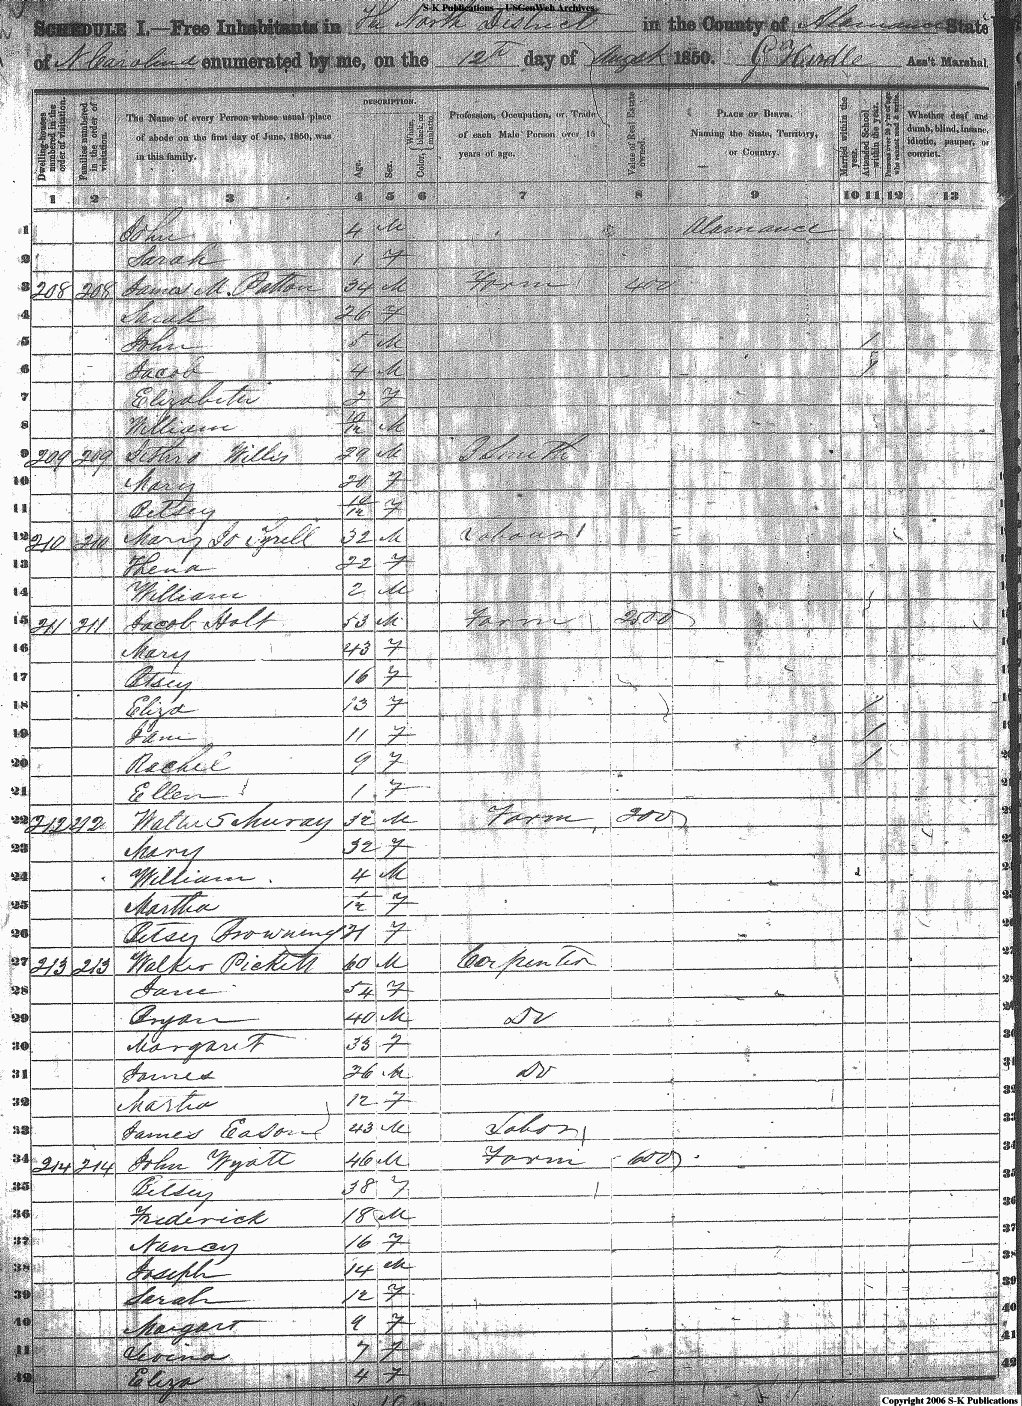 S-K Publications - USGenWeb Archives
SCHEDULE I.—Free Inhabitants in The North District in the County of Alamance State
of N. Carolina enumerated by me, on the 12th day of August 1850. Ass't Marshal.
Dwelling-houses numbered in the order of visitation.
Families numbered in the order of visitation.
The Name of every Person whose usual place of abode on the first day of June, 1850, was in this family.
DESCRIPTION.
Age.
Sex.
Color, White, black, or mulatto.
Profession, Occupation, or Trade of each Male Person over 15 years of age.
Value of Real Estate owned.
PLACE OF BIRTH. Naming the State, Territory, or Country.
Married within the year.
Attended School within the year.
Persons over 20 y'rs of age who cannot read & write.
Whether deaf and dumb, blind, insane, idiotic, pauper, or convict.
1 2 3 4 5 6 7 8 9 10 11 12 13
1 John 4 M Alamance
2 Sarah 1 F
3 208 208 James M. Patton 34 M Farm 400
4 Sarah 26 F
5 John 5 M 1
6 Jacob 4 M 1
7 Elizabeth 2 F
8 William 10/12 M
9 209 209 Willis 29 M B Smith
10 Mary 20 F
11 Betsey 10/12 F
12 210 210 Tyrell 32 M Labour
13 22 F
14 William 2 M
15 211 211 Jacob Holt 53 M Farm 2500
16 Mary 43 F
17 Betsey 16 F
18 Eliza 13 F 1
19 Jane 11 F 1
20 Rachel 9 F 1
21 Ellen 1 F
22 212 212 Murray 32 M Farm 200
23 Mary 32 F
24 William 4 M
25 Martha 1/12 F
26 Betsey Browning 21 F
27 213 213 Walker Pickett 60 M Carpenter
28 Jane 54 F
29 Bryan 40 M Do
30 Margaret 33 F
31 James 26 M Do
32 Martha 12 F
33 James Eason 43 M Labor
34 214 214 John Wyatt 46 M Farm 600
35 Betsey 38 F
36 Frederick 18 M
37 Nancy 16 F
38 Joseph 14 M
39 Sarah 12 F
40 Margart 9 F
41 Levina 7 F
42 Eliza 4 F
Copyright 2006 S-K Publications